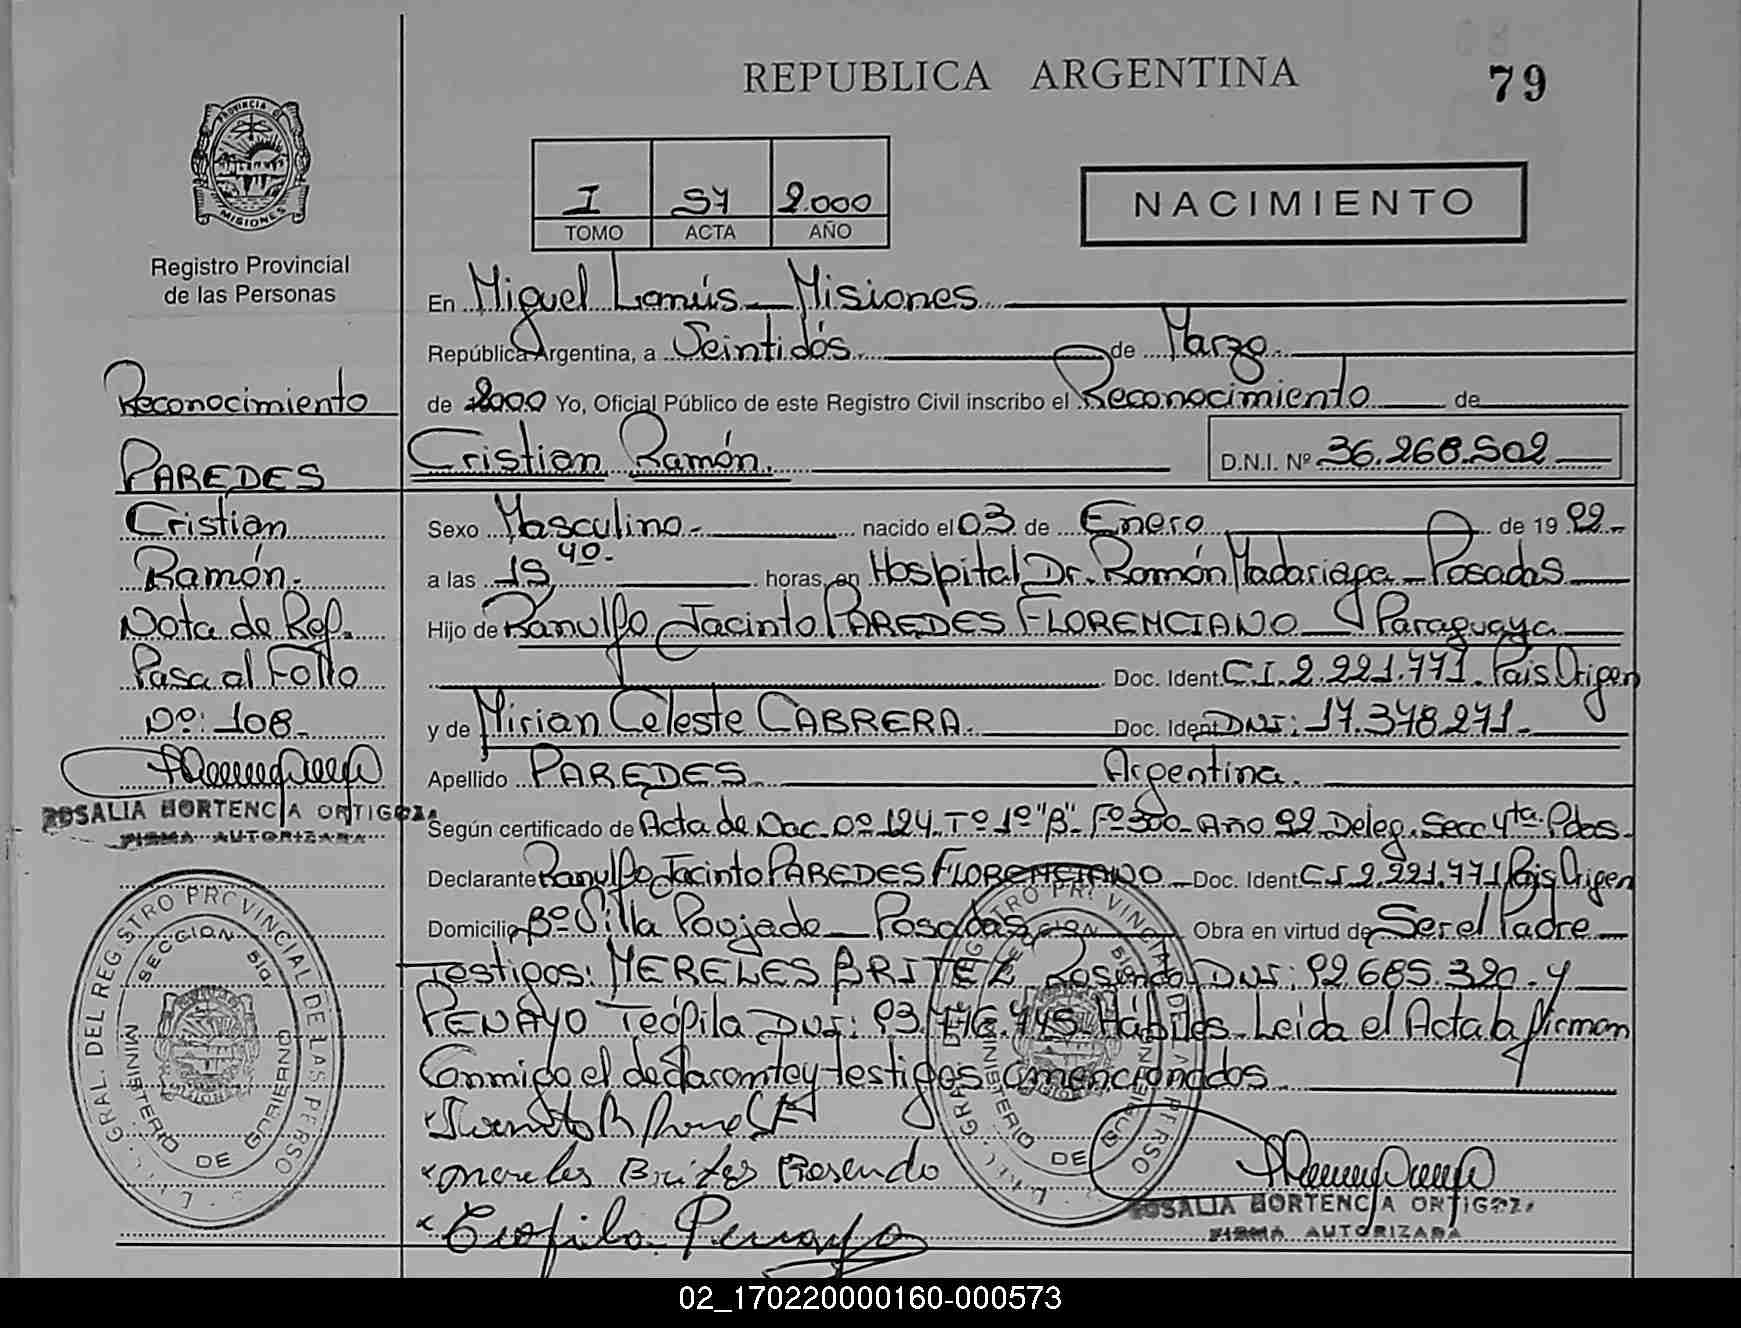 REPUBLICA ARGENTINA
79
PROVINCIA DE
MISIONES
Registro Provincial
de las Personas
I S7 2.000
TOMO ACTA AÑO
NACIMIENTO
En Miguel Lanús - Misiones
República Argentina, a Veintidós de Marzo
de 2000 Yo, Oficial Público de este Registro Civil inscribo el Reconocimiento de
Cristian Ramón. D.N.I. Nº 36.268.502
Sexo Masculino.- nacido el 03 de Enero de 19 92-
a las 19 40.- horas, en Hospital Dr. Ramón Madariaga - Posadas
Hijo de Ranulfo Jacinto PAREDES FLORENCIANO - Paraguaya
Doc. Ident. C.I. 2.221.771. País Origen
y de Mirian Celeste CABRERA. Doc. Ident. DNI: 17.378.271.-
Apellido PAREDES Argentina.
Según certificado de Acta de Nac. Nº 124. Tº 1º "B". Fº 300- Año 92 Deleg. Secc 4ta Pdas.
Declarante Ranulfo Jacinto PAREDES FLORENCIANO - Doc. Ident. C.I 2.221.771 País Origen
Domicilio Bº Villa Poujade - Posadas Obra en virtud de Ser el Padre
Testigos: MERELES BRITEZ Rosendo DNI: 92.685.320. y
PENAYO Teófila DNI: 93.776.745. Hábiles. Leida el Acta la firman
Conmigo el declarante y testigos mencionados
Mereles Britez Rosendo
Teofila Penayo
ROSALIA HORTENCIA ORTIGOZA
FIRMA AUTORIZADA
Reconocimiento
PAREDES
Cristian
Ramón.
Nota de Ref.
Pasa al Folio
Nº: 108.
ROSALIA HORTENCIA ORTIGOZA
FIRMA AUTORIZADA
GRAL. DEL REGISTRO PROVINCIAL DE LAS PERSO
SECCION
MINISTERIO DE GOBIERNO
GRAL. DEL REGISTRO PROVINCIAL DE LAS PERSO
MINISTERIO DE GOBIERNO
02_170220000160-000573